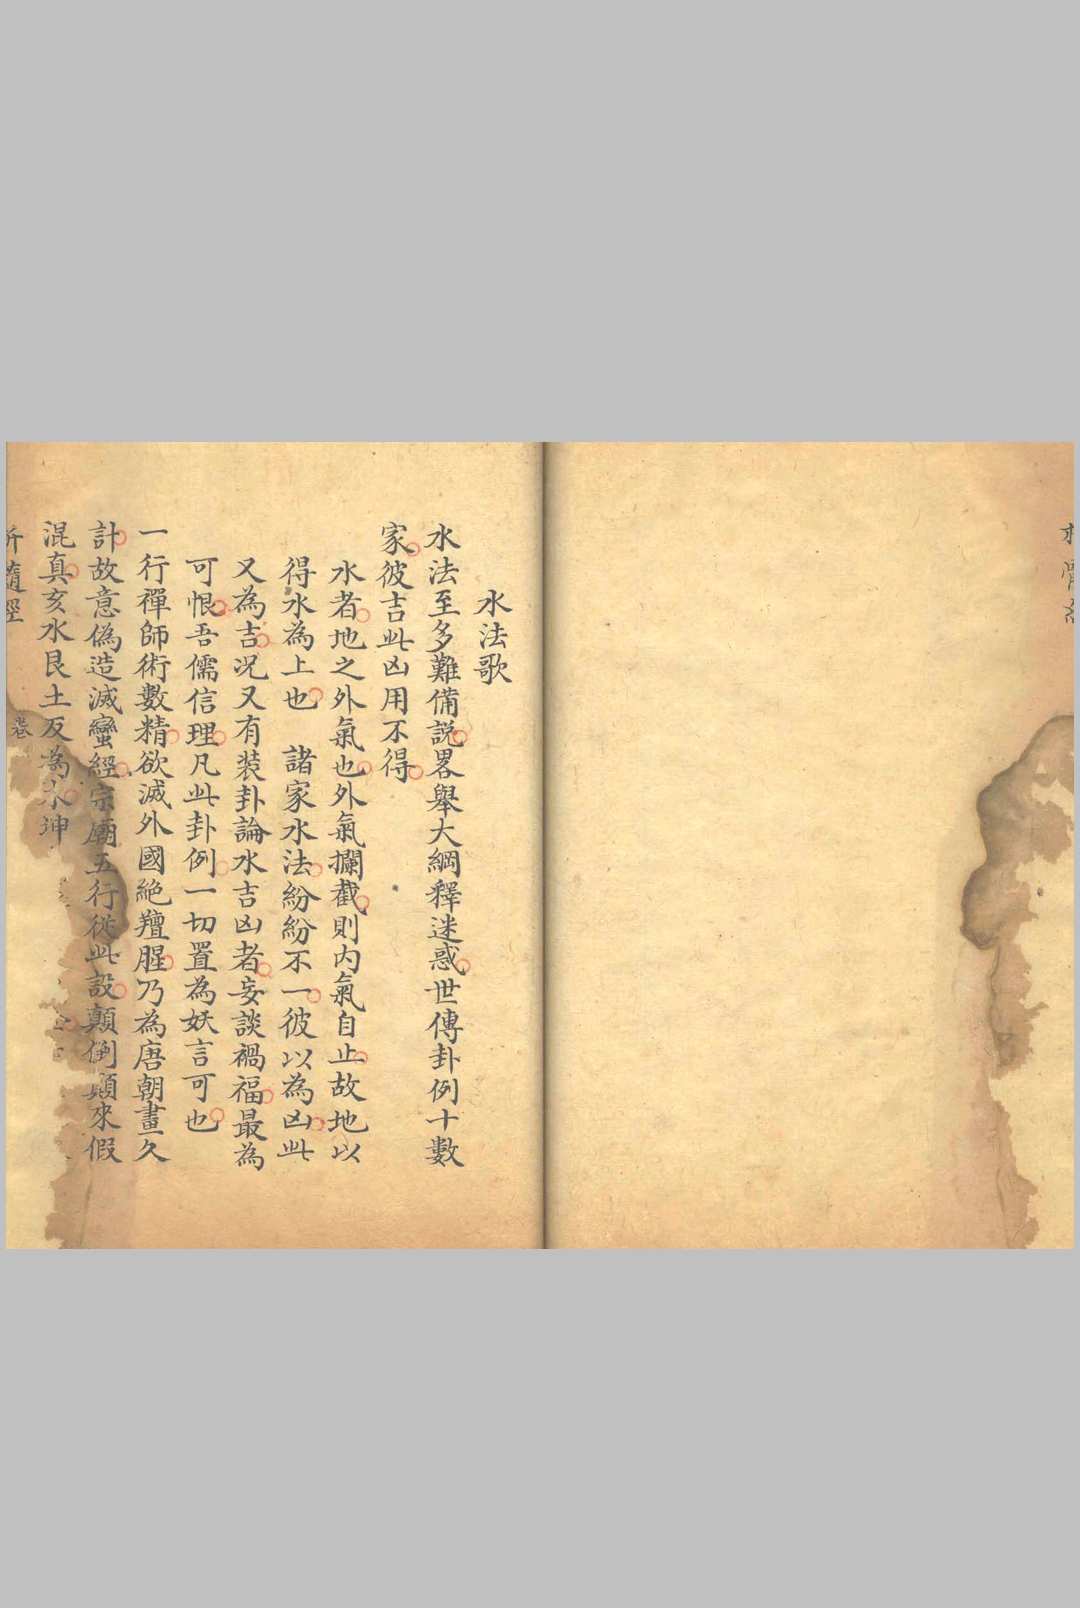 水法歌
水法至多難備說畧舉大綱釋迷惑世傳卦例十數
家彼吉此凶用不得
水者地之外氣也外氣攔截則內氣自止故地以
得水為上也 諸家水法紛紛不一彼以為凶此
又為吉况又有裝卦論水吉凶者妄談禍福最為
可恨吾儒信理凡此卦例一切置為妖言可也
一行禪師術數精欲滅外國絶羶腥乃為唐朝畫久
計故意偽造滅蠻經宗廟五行從此設顛倒顛來假
混真亥水艮土反為
卷